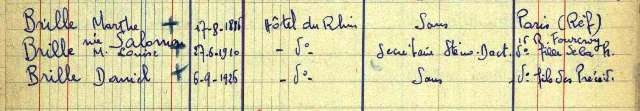 Brille Marthe + 27-8-1886 Hôtel du Rhin Sans Paris (Réf)
née Salomon 15 R. Fourcroy
Brille M. Louise 27-6-1910 - d°- Secrétaire Sténo-Dact. d° fille de la P.
Brille Daniel + 6-9-1926 - d°- Sans d° fils des Précéd.